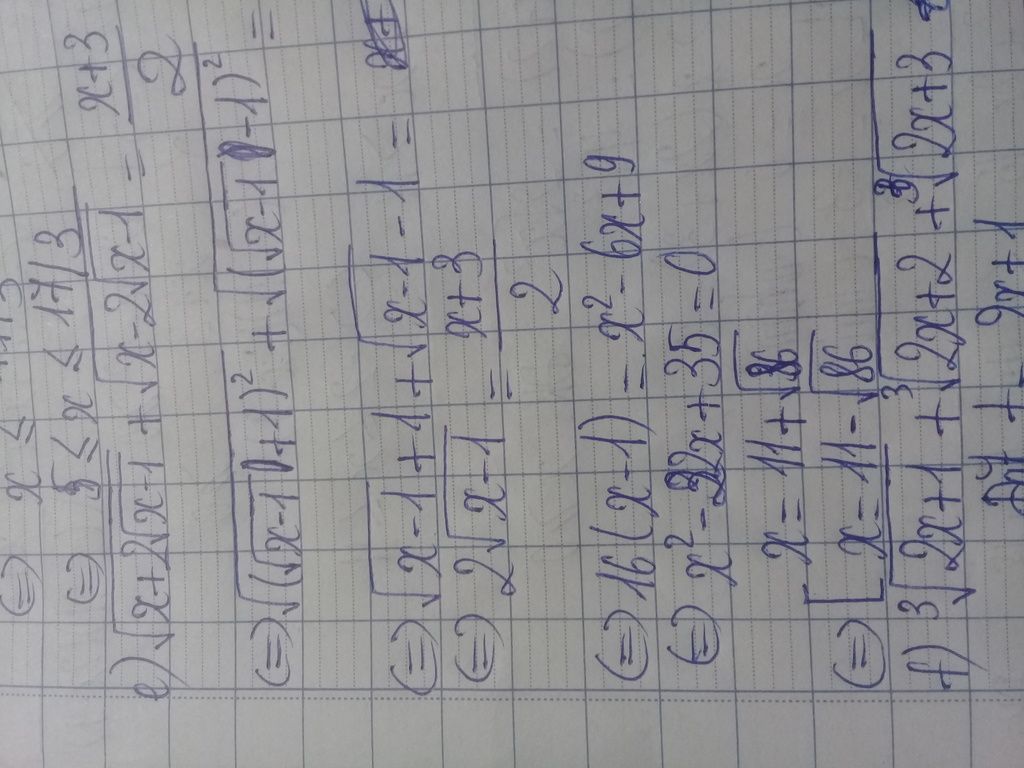 ⇔ x ≤
⇔ 5 ≤ x ≤ 17/3
e) √(x+2√(x-1)) + √(x-2√(x-1)) = (x+3)/2
⇔ √((√(x-1)+1)²) + √((√(x-1)-1)²) =
⇔ √(x-1)+1+√(x-1)-1 =
⇔ 2√(x-1) = (x+3)/2
⇔ 16(x-1) = x²-6x+9
⇔ x²-22x+35=0
x = 11+√86
⇔ [ x = 11-√86
f) ³√(2x+1) + ³√(2x+2) + ³√(2x+3)
Đặt t = 2x+1